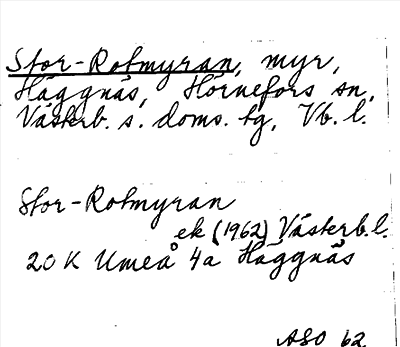 Stor-Rotmyran, myr,
Häggnäs, Hörnefors sn,
Västerb. s. doms. tg, Vb. l.
Stor-Rotmyran
ek (1962) Västerb. l.
20 K Umeå 4a Häggnäs
ASO 62